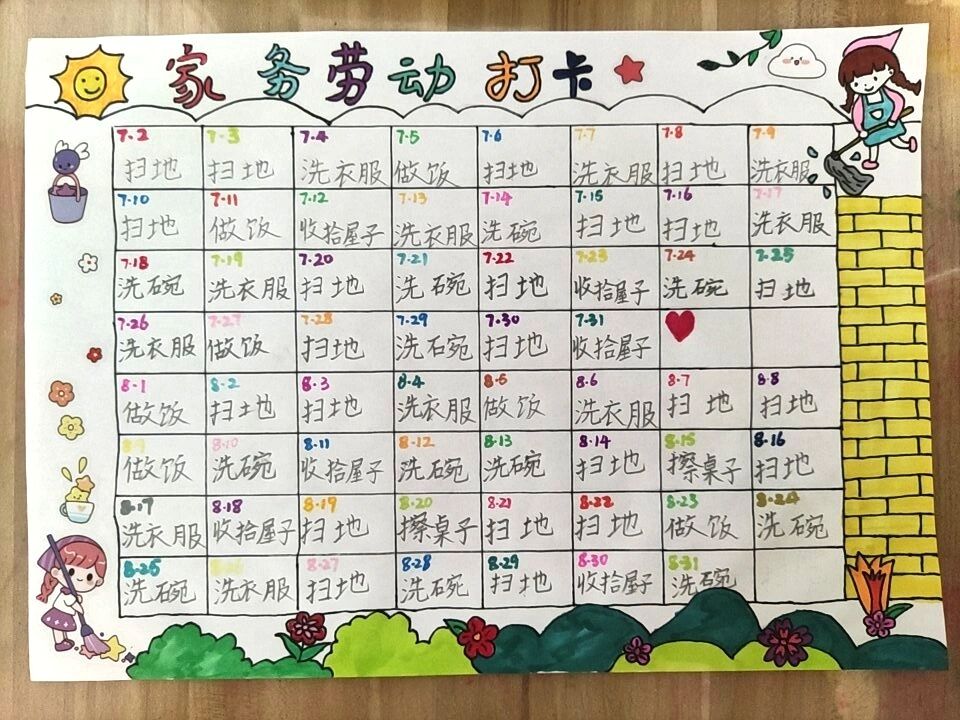 家务劳动打卡
7.2 7.3 7.4 7.5 7.6 7.7 7.8 7.9
扫地 扫地 洗衣服 做饭 扫地 洗衣服 扫地 洗衣服
7.10 7.11 7.12 7.13 7.14 7.15 7.16 7.17
扫地 做饭 收拾屋子 洗衣服 洗碗 扫地 扫地 洗衣服
7.18 7.19 7.20 7.21 7.22 7.23 7.24 7.25
洗碗 洗衣服 扫地 洗碗 扫地 收拾屋子 洗碗 扫地
7.26 7.27 7.28 7.29 7.30 7.31
洗衣服 做饭 扫地 洗碗 扫地 收拾屋子
8.1 8.2 8.3 8.4 8.5 8.6 8.7 8.8
做饭 扫地 扫地 洗衣服 做饭 洗衣服 扫地 扫地
8.9 8.10 8.11 8.12 8.13 8.14 8.15 8.16
做饭 洗碗 收拾屋子 洗碗 洗碗 扫地 擦桌子 扫地
8.17 8.18 8.19 8.20 8.21 8.22 8.23 8.24
洗衣服 收拾屋子 扫地 擦桌子 扫地 扫地 做饭 洗碗
8.25 8.26 8.27 8.28 8.29 8.30 8.31
洗碗 洗衣服 扫地 洗碗 扫地 收拾屋子 洗碗